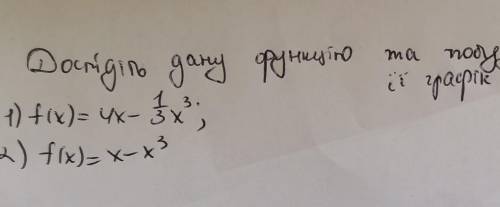 Дослідіть дану функцію та побу
її графік
1) f(x) = 4x - 1/3 x³;
2) f(x) = x - x³